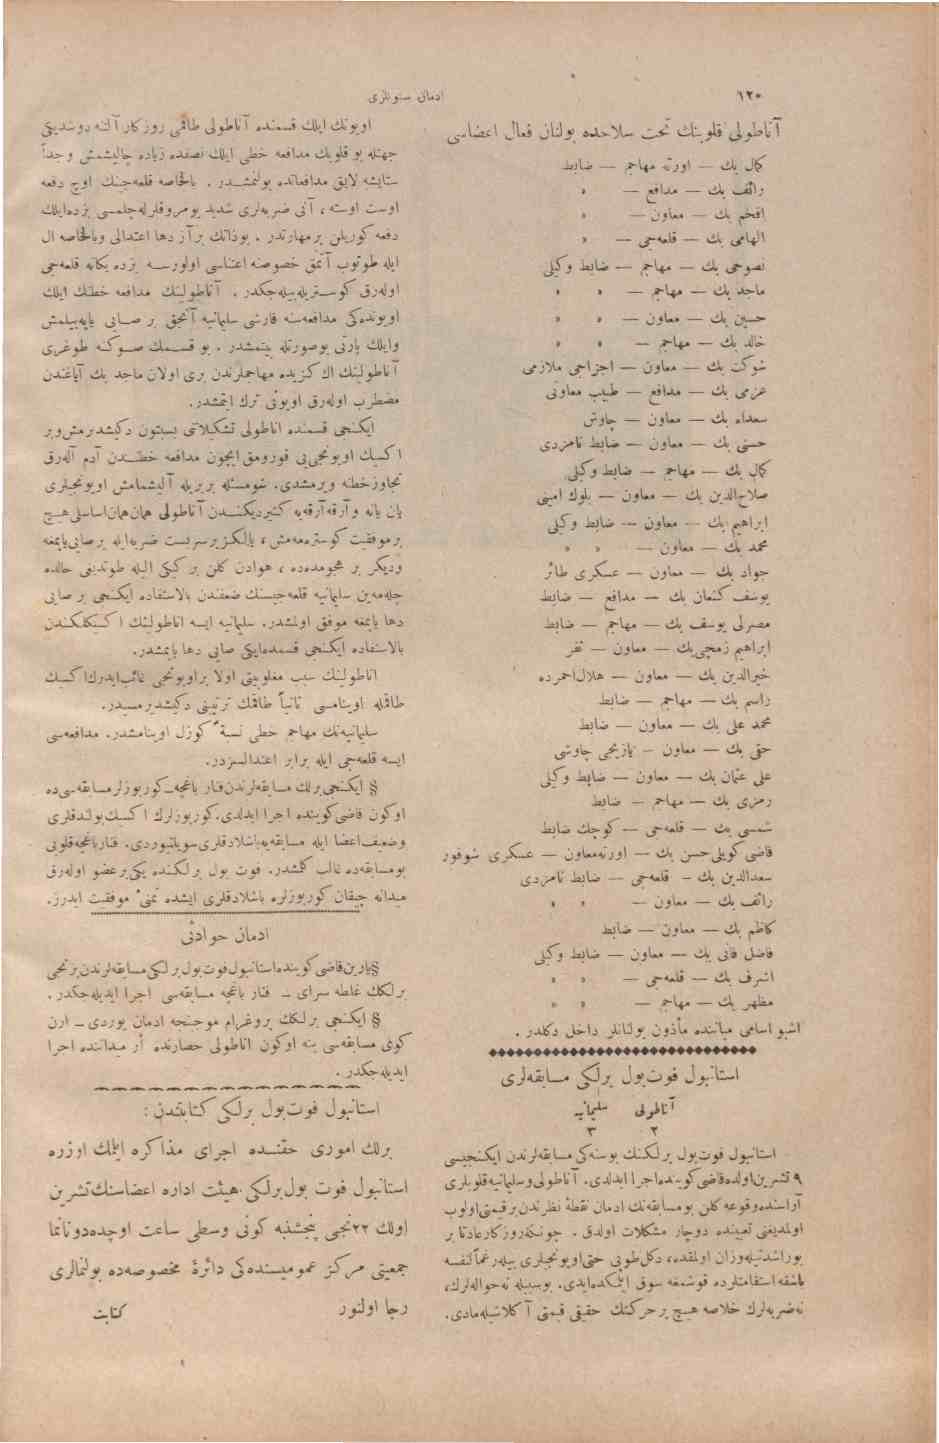 ١٢٠
ادمان ستونلری
آناطولی قلوبنك تحت سلاحده بولنان فعال اعضاسی
كمال بك — اورته مهاجم — ضابط
رائف بك — مدافع — »
افخم بك — معاون — »
الهامی بك — قلعه‌جی — »
نصوحی بك — مهاجم — ضابط وكیلی
ماجد بك — مهاجم — » »
حسین بك — معاون — » »
خالد بك — مهاجم — » »
شوكت بك — معاون — اجزاجی ملازمی
عزمی بك — مدافع — طبیب معاونی
سعداء بك — معاون — چاوش
حسنی بك — معاون — ضابط نامزدی
كمال بك — مهاجم — ضابط وكیلی
صلاح‌الدین بك — معاون — بلوك امینی
ابراهیم بك — معاون — ضابط وكیلی
محمد بك — معاون — » »
جواد بك — معاون — عسكری طائر
یوسف كنعان بك — مدافع — ضابط
مصرلی یوسف بك — مهاجم — ضابط
ابراهیم زمچی بك — معاون — نفر
خیرالدین بك — معاون — هلال‌احمرده
راسم بك — مهاجم — ضابط
محمد علی بك — معاون — ضابط
حقی بك — معاون — یازیجی چاوشی
علی عثمان بك — معاون — ضابط وكیلی
رمزی بك — مهاجم — ضابط
شمسی بك — قلعه‌جی — كوچك ضابط
قاضی كویلی حسن بك — اورته‌معاون — عسكری شوفور
سعدالدین بك — قلعه‌جی — ضابط نامزدی
رائف بك — معاون — » »
كاظم بك — معاون — ضابط
فاضل فانی بك — معاون — ضابط وكیلی
اشرف بك — قلعه‌جی — » »
مظهر بك — مهاجم — » »
اشبو اسامی میاننده مأذون بولنانلر داخل دكلدر .
استانبول فوت‌بول برلكی مسابقه‌لری
آناطولی سلیمانیه
٢ ٣
استانبول فوت‌بول برلكنك بوسنه‌كی مسابقه‌لرندن ایكنجیسی
٩ تشرین‌اولده‌قاضی‌كوینده‌اجرا ایدلدی. آناطولی‌وسلیمانیه‌قلوبلری
آراسنده‌وقوعه كلن بومسابقه‌نك ادمان نقطهٔ نظرندن‌برقیمتی‌اولوب
اولمدیغنی تعیینده دوچار مشكلات اولدق . چونكه‌روزكارعادتا بر
بوراشدتیله‌وزان اولمقده، دكل‌طوپی حتی‌اویونجیلری بیله‌رغماًلنفسه
باشقه‌استقامتلرده قوشمغه سوق ایتمكده‌ایدی. بوسببله نه‌حواله‌لرك،
نه‌ضربه‌لرك خلاصه هیچ برحركتك حقیقی قیمتی آكلاشیله‌مادی.
اویونك ایلك قسمنده آناطولی طاقمی روزكار آلتنه دوشدیكی
جهتله بو قلوبك مدافعه خطی ایلك نصفده زیاده چالیشمش وجداً
ستایشه لایق مدافعاتده بولنمشدر . بالخاصه قلعه‌جینك اوچ دفعه
اوست اوسته ، آنی ضربه‌لری شدید یومروقلرله‌چلمسی بزده‌ایلك
دفعه كوریلن برمهارتدر . بوذاتك برآز دها اعتدالی وبالخاصه ال
ایله طوتوب آتمق خصوصنه اعتناسی اولورسه بزده یكانه قلعه‌جی
اوله‌رق كوستریله‌بیله‌جكدر . آناطولینك مدافعه خطنك ایلك
اویونده‌كی مدافعه‌سنه قارشی سلیمانیه آنجق بر صایی یاپه‌بیلمش
وایلك پارتی بوصورتله بیتمشدر . بو قسمك صوكنه طوغری
آناطولینك اك كزیده مهاجملرندن بری اولان ماجد بك آیاغندن
مضطرب اوله‌رق اویونی ترك ایتمشدر.
ایكنجی قسمنده اناطولی تشكیلاتنی بسبتون دكیشدیرمش‌وبر
اكسیك اویونجی‌یی قورومق ایچون مدافعه خطندن آدم آله‌رق
تجاوزخطنه ویرمشدی. شومسئله بربریله آلیشمامش اویونجیلری
یان یانه وآرقه‌آرقه‌یه كتیردیكندن آناطولی همان‌همان‌اساسلی‌هیچ
برموفقیت كوستره‌مه‌مش، یالكزبرسربست ضربه‌ایله برصایی‌یاپمغه
ودیكر بر هجومده‌ده ، هوادن كلن بر كبكی الیله طوتدیغی حالده
چله‌مه‌ین سلیمانیه قلعه‌جیسنك ضعفندن بالاستفاده ایكنجی بر صایی
دها یاپمغه موفق اولمشدر. سلیمانیه ایسه اناطولینك اكسكلكندن
بالاستفاده ایكنجی قسمده‌ایكی صایی دها یاپمشدر.
اناطولینك سبب مغلوبیتی اولا براویونجی غائب‌ایدرك‌اكسیك
طاقمله اوینامسی ثانیاً طاقمك ترتیبنی دكیشدیرمسیدر.
سلیمانیه‌نك مهاجم خطی نسبةً كوزل اوینامشدر. مدافعه‌سی
ایسه قلعه‌جی ایله برابر اعتدالسزدر.
§ ایكنجی برلك مسابقه‌لرندن فنار باغچه–كوربوزلرمسابقه‌سی‌ده
اوكون قاضی‌كوینده اجرا ایدلدی.كوربوزلرك اكسیك‌بولندقلری
وضعیف‌اعضا ایله مسابقه‌یه‌باشلادقلری سویلنیوردی. فنارباغچه‌قلوبی
بومسابقه‌ده غالب كلمشدر. فوت بول برلكنده یكی‌برعضو اوله‌رق
میدانه چیقان كوربوزلره باشلادقلری ایشده تمنیٔ موفقیت ایدرز.
ادمان حوادثی
§ یارین‌قاضی‌كوینده‌استانبول‌فوت‌بول‌برلكی‌مسابقه‌لرندن‌برنجی
برلكك غلطه سرای – فنار باغچه مسابقه‌سی اجرا ایدیله‌جكدر .
§ ایكنجی برلكك پروغرام موجبنجه ادمان یوردی – ارن
كوی مسابقه‌سی ینه اوكون اناطولی حصارنده أر میداننده اجرا
ایدیله‌جكدر .
استانبول فوت‌بول برلكی كتابتندن :
برلك اموری حقنده اجرای مذاكره ایتمك اوزره
استانبول فوت بول‌برلكی هیئت اداره اعضاسنك‌تشرین
اولك ٢٢نجی پنجشنبه كونی وسطی ساعت اوچده‌دونانما
جمعیتی مركز عمومیسنده‌كی دائرهٔ مخصوصه‌ده بولنمالری
رجا اولنور
كتابت